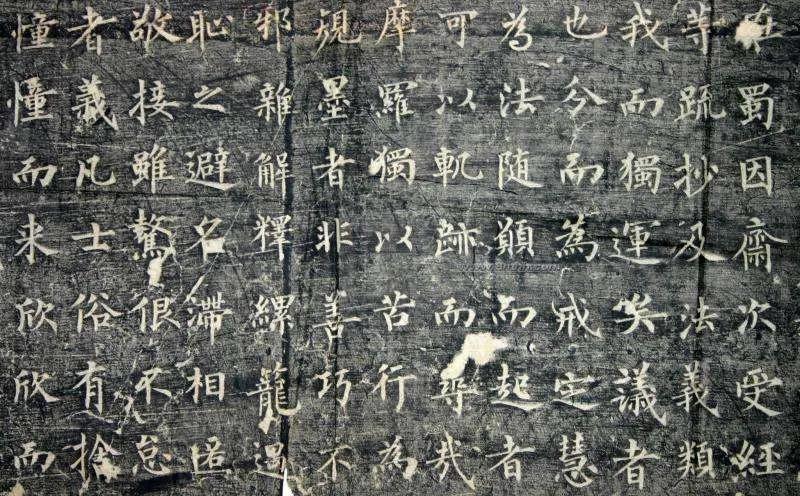 在蜀因齋次受經
等疏抄及法義類
我而獨運矣議者
也今而為戒定慧
為法随願而起者
可以軌跡而尋哉
摩羅獨以苦行為
規墨者非善巧不
邪雜解釋縲籠
恥之避名滯相匿
敬接雖驁很不怠
者義凡士俗有捨
憧憧而来欣欣而